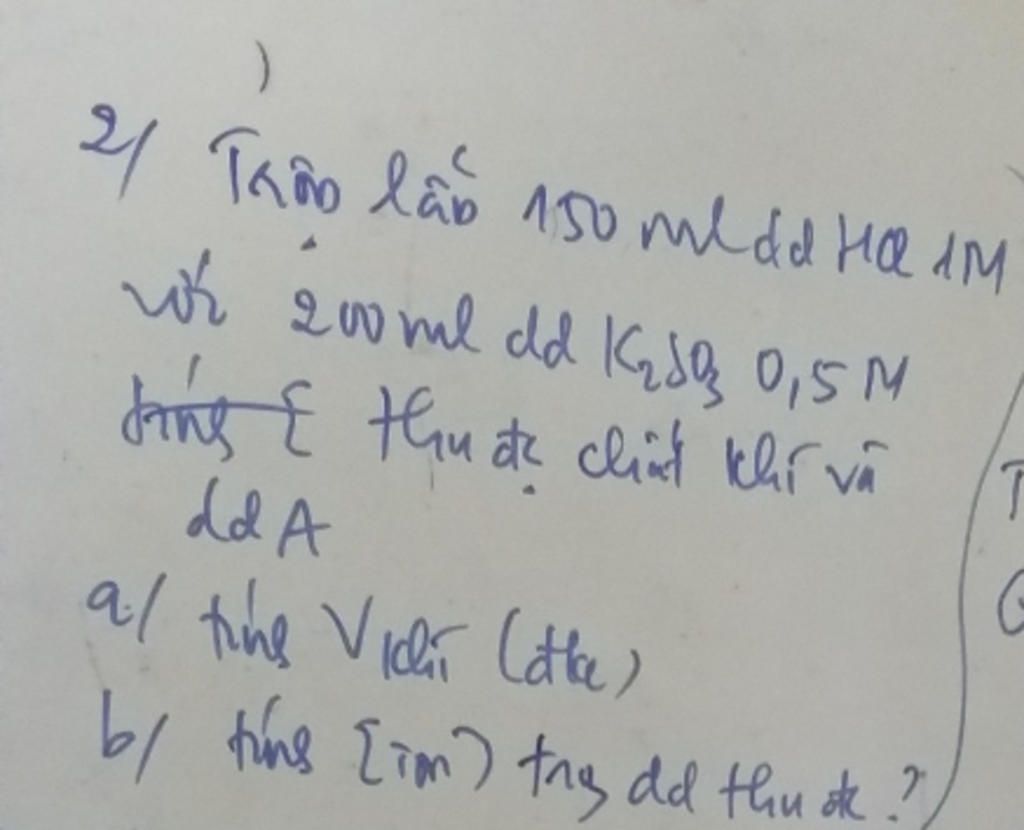 2/ Trộn lẫn 150 ml dd HCl 1M
với 200 ml dd K₂SO₃ 0,5 M
tính [ thu đc chất khí và
dd A
a/ tính V khí (đkc)
b/ tính [ion] trng dd thu đc ?